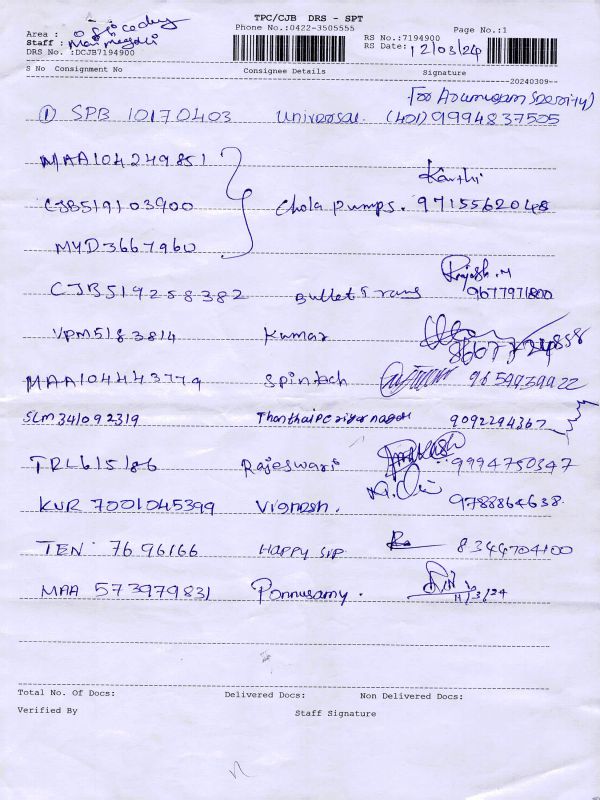 TPC/CJB DRS - SPT
Phone No.:0422-3505555
Page No.:1
Area :
Staff :
RS No.:7194900
DRS No. :DCJB7194900
RS Date: 12/03/24
S No Consignment No Consignee Details Signature
20240309--
① SPB 10170403 Universal (401) 9994837505
MAA104249851
Karthi
CJB519103900 Chola pumps. 9715562048
MYD3667960
CJB519258382 Bullet Trans 9677971800
VPM5183814 Kumar
MAA104443779 Spintech 9659939922
SLM341092319 Thanthai periyar nagar 9092294367
TRL615186 Rajeswari 9994750347
KUR 7001045399 Vignesh. 9788864638
TEN 7696166 HAPPY SIP 8344704100
MAA 573979831 Ponnusamy.
11/3/24
Total No. Of Docs: Delivered Docs: Non Delivered Docs:
Verified By Staff Signature